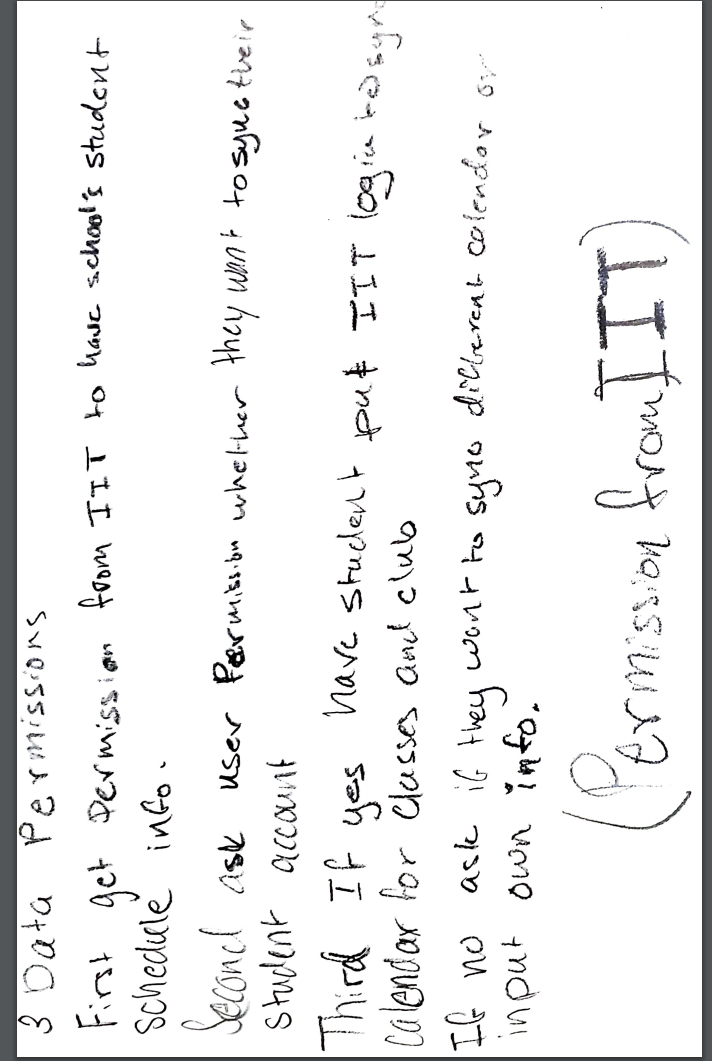 3 Data Permissions
First get Permission from IIT to have school's student
schedule info.
Second ask user Permission whether they want to sync their
student account
Third If yes have student put IIT login to sync
calendar for classes and club
If no ask if they want to sync different calendar or
input own info.
(Permission from IIT)